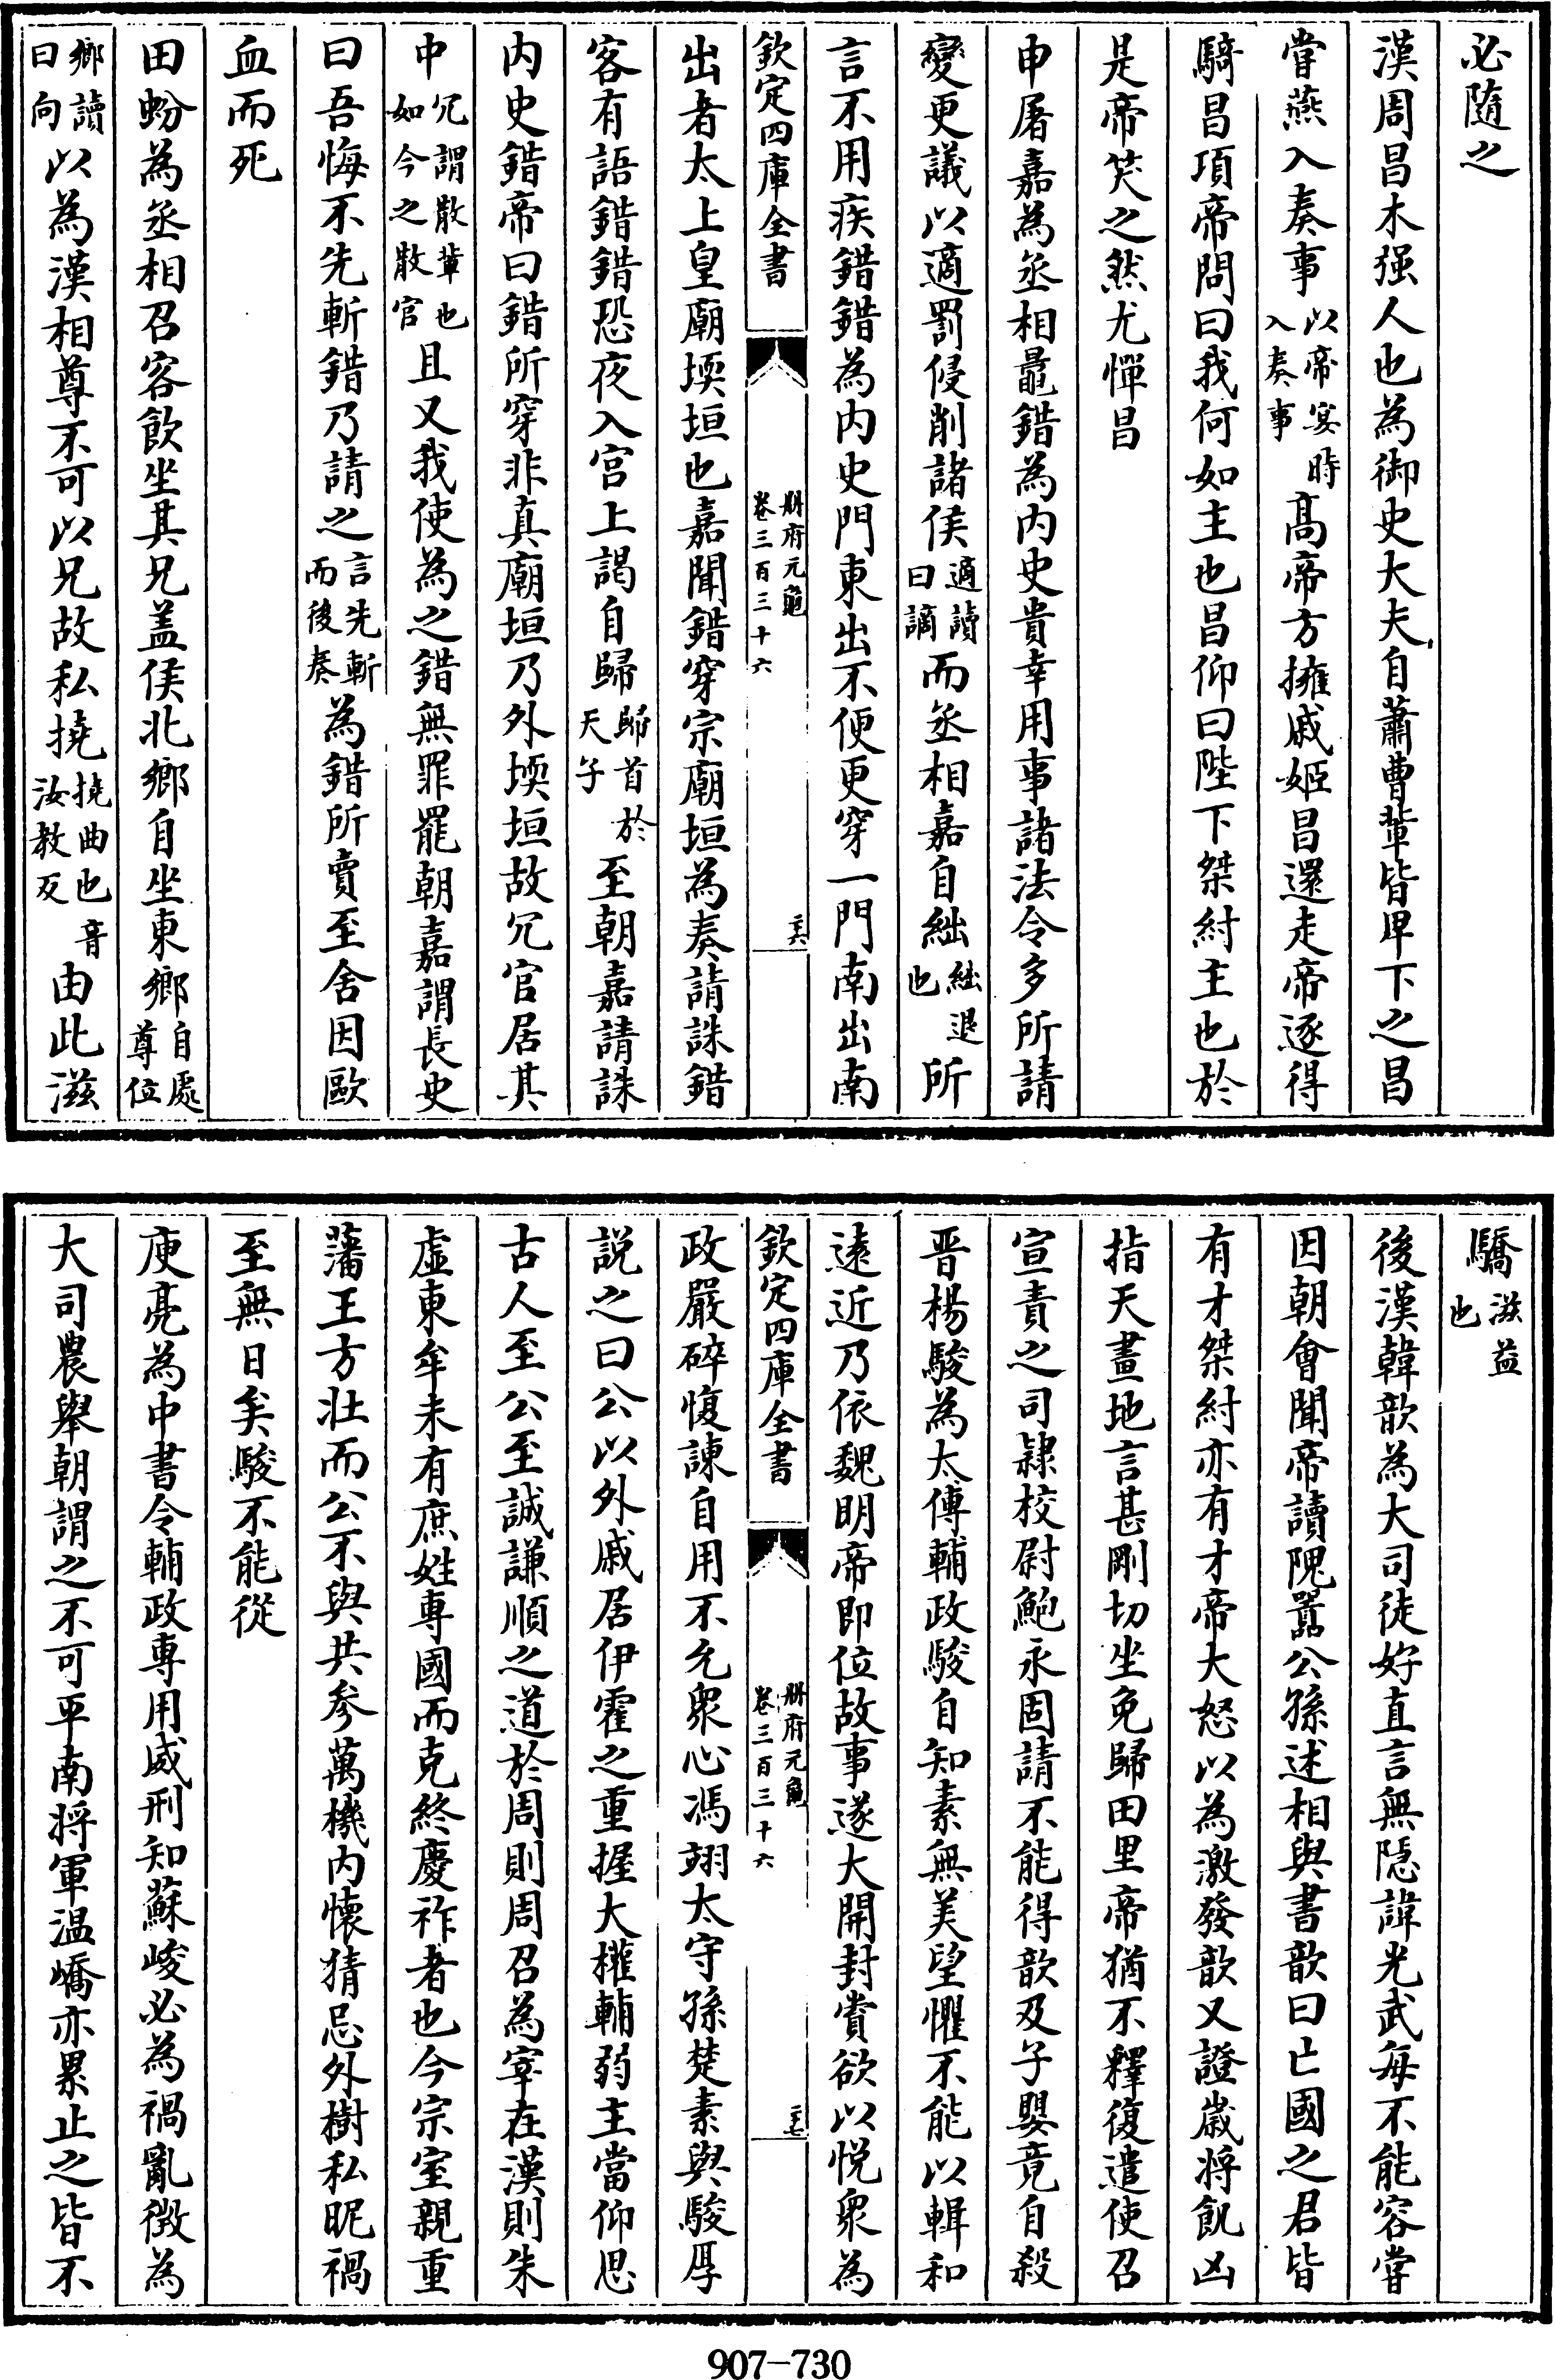 必隨之
漢周昌木强人也為御史大夫自蕭曹輩皆卑下之昌
嘗燕入奏事以帝宴時入奏事高帝方擁戚姬昌還走帝逐得
騎昌項帝問曰我何如主也昌仰曰陛下桀紂主也於
是帝笑之然尤憚昌
申屠嘉為丞相鼂錯為内史貴幸用事諸法令多所請
變更議以適罰侵削諸侯適讀曰謫而丞相嘉自絀絀退也所
言不用疾錯錯為内史門東出不便更穿一門南出南
欽定四庫全書
冊府元龜
卷三百三十六
二六
出者太上皇廟堧垣也嘉聞錯穿宗廟垣為奏請誅錯
客有語錯錯恐夜入宫上謁自歸歸首於天子至朝嘉請誅
内史錯帝曰錯所穿非真廟垣乃外堧垣故冗官居其
中冗謂散輩也如今之散官且又我使為之錯無罪罷朝嘉謂長史
曰吾悔不先斬錯乃請之言先斬而後奏為錯所賣至舍因歐
血而死
田蚡為丞相召客飲坐其兄盖侯北鄉自坐東鄉自處尊位
鄉讀曰向以為漢相尊不可以兄故私撓撓曲也音汝教反由此滋
驕滋益也
後漢韓歆為大司徒好直言無隠諱光武每不能容嘗
因朝會聞帝讀隗囂公孫述相與書歆曰亡國之君皆
有才桀紂亦有才帝大怒以為激發歆又證歲将飢凶
指天畫地言甚剛切坐免歸田里帝猶不釋復遣使召
宣責之司隸校尉鮑永固請不能得歆及子嬰竟自殺
晋楊駿為太傅輔政駿自知素無美望懼不能以輯和
逺近乃依魏明帝即位故事遂大開封賞欲以悦衆為
欽定四庫全書
冊府元龜
卷三百三十六
二七
政嚴碎愎諫自用不允衆心馮翊太守孫楚素與駿厚
説之曰公以外戚居伊霍之重握大權輔弱主當仰思
古人至公至誠謙順之道於周則周召為宰在漢則朱
虚東牟未有庶姓専國而克終慶祚者也今宗室親重
藩王方壮而公不與共参萬機内懐猜忌外樹私昵禍
至無日矣駿不能從
庾亮為中書令輔政専用威刑知蘇峻必為禍亂徴為
大司農舉朝謂之不可平南将軍温嶠亦累止之皆不
907-730